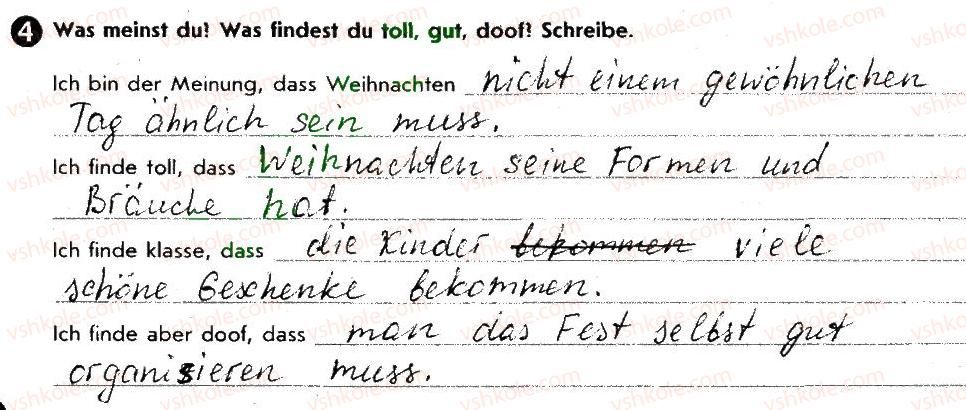 4 Was meinst du? Was findest du toll, gut, doof? Schreibe.
Ich bin der Meinung, dass Weihnachten nicht einem gewöhnlichen
Tag ähnlich sein muss.
Ich finde toll, dass Weihnachten seine Formen und
Bräuche hat.
Ich finde klasse, dass die Kinder bekommen viele
schöne Geschenke bekommen.
Ich finde aber doof, dass man das Fest selbst gut
organisieren muss.